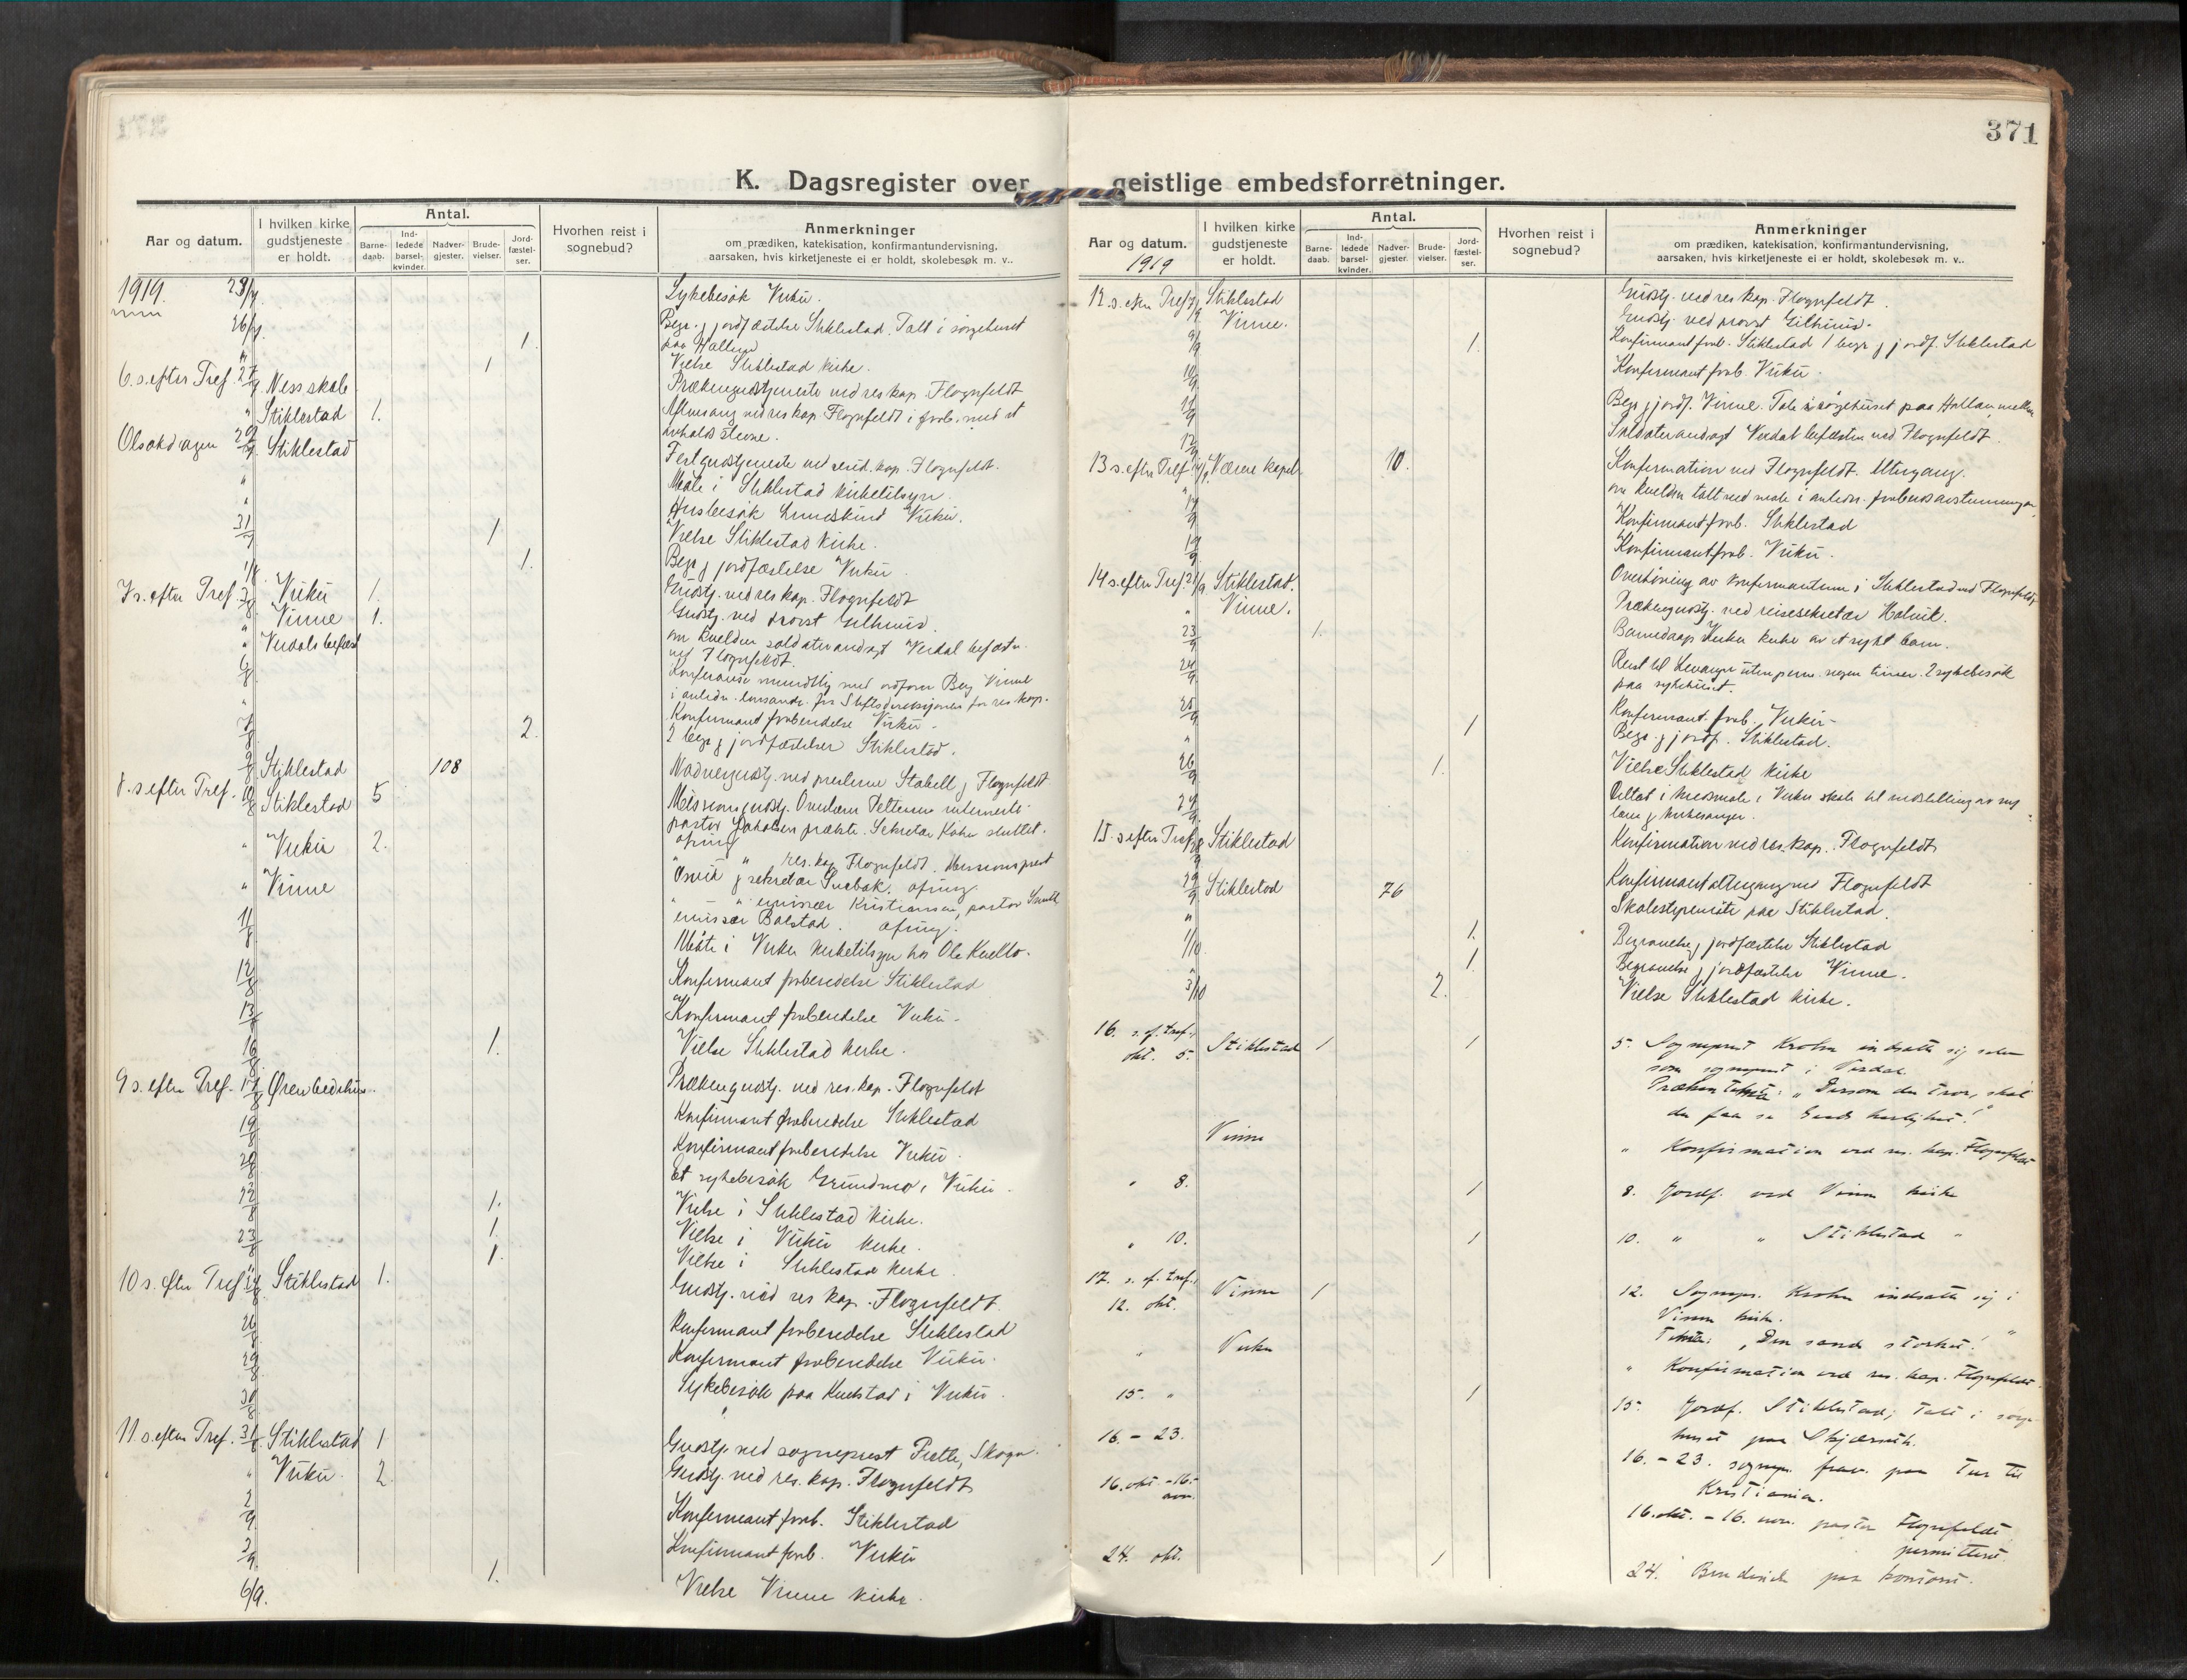 371
K. Dagsregister over geistlige embedsforretninger.
Aar og datum.
I hvilken kirke gudstjeneste er holdt.
Antal.
Barne-daab.
Ind-ledede barsel-kvinder.
Nadver-gjester.
Brude-vielser.
Jord-fæstel-ser.
Hvorhen reist i sognebud?
Anmerkninger
om prædiken, katekisation, konfirmantundervisning,
aarsaken, hvis kirketjeneste ei er holdt, skolebesøk m. v..
1919. 23/7. Sykebesøk Vuku.
26/7. 1. Begr. j jordfæstelse Stiklestad. Talt i sørgehuset
paa Hallem
" 1 Vielse Stiklestad kirke.
6. s. efter Tref. 27/7 Ness skole Prækengudstjeneste ved res kap. Flognfeldt
" Stiklestad 1. Aftensang ved res kap. Flognfeldt i forb. med et
avholds stevne.
Olsokdagen 29/7. Stiklestad Festgudstjeneste ved resid. kap. Flognfeldt.
" Møte i Stiklestad kirketilsyn.
" Husbesøk Vuku.
31/7 1 Vielse Stiklestad kirke.
1/8. 1. Begr j jordfæstelse Vuku.
7 s. efter Tref. 3/8 Vuku 1. Gudstj. ved res kap. Flognfeldt
" Vinne 1. Gudstj. ved provst Gilhuus.
" Verdals befæst om kvelden soldaterandagt Verdal befæstn.
ved Flognfeldt.
6/8 Konferanse mundtlig med ordfører Vinne
i anledn. fra Stiftsdireksjonen for res. kap.
" Konfirmant forberedelse Vuku.
7/8 2. 2 begr j jordfæstelser Stiklestad.
9/8 Stiklestad 108 Nadvergudstj. ved presterne Stabell j Flognfeldt
8. s efter Tref. 10/8 Stiklestad 5 Missionsgudstj. Overlærer Pettersen
pastor prækte. Sekretær sluttet.
ofring
" Vuku 2. " " res. kap Flognfeldt. Missionsprest
j sekretær ofring
" Vinne " " emissær Kristiansen, pastor
emissær ofring.
11/8 Møte i Vuku kirketilsyn hos Ole
12/8 Konfirmant forberedelse Stiklestad
13/8 Konfirmant forberedelse Vuku.
16/8 1. Vielse Stiklestad kirke.
9 s. efter Tref. 17/8 Øren bedehus. Prækengudstj. ved res. kap. Flognfeldt
19/8 Konfirmant forberedelse Stiklestad
20/8 Konfirmant forberedelse Vuku.
Et sykebesøk Grundmo, Vuku.
22/8 1. Vielse i Stiklestad kirke.
23/8 1. Vielse i Vuku kirke.
" 1. Vielse i Stiklestad kirke.
10 s. efter Tref 24/8 Stiklestad 1. Gudstj. ved res kap. Flognfeldt.
26/8 Konfirmant forberedelse Stiklestad
29/8 Konfirmant forberedelse Vuku.
30/8 Sykebesøk paa i Vuku.
11. s. efter Tref. 31/8 Stiklestad 1 Gudstj. ved sogneprest Skogn.
" Vuku. 2 Gudstj. ved res. kap. Flognfeldt
2/9 Konfirmant forb. Stiklestad
3/9. Konfirmant forb. Vuku
6/9. 1. Vielse Vinne kirke.
Aar og datum.
1919
I hvilken kirke gudstjeneste er holdt.
Antal.
Barne-daab.
Ind-ledede barsel-kvinder.
Nadver-gjester.
Brude-vielser.
Jord-fæstel-ser.
Hvorhen reist i sognebud?
Anmerkninger
om prædiken, katekisation, konfirmantundervisning,
aarsaken, hvis kirketjeneste ei er holdt, skolebesøk m. v..
12. s. efter Tref 7/9 Stiklestad Gudstj. ved res kap. Flognfeldt.
Vinne. Gudstj. ved provst Gilhuus.
9/9 1. Konfirmant forb. Stiklestad 1 begr. j jordf. Stiklestad
10/9 Konfirmant forb. Vuku.
11/9 Begr j jordf. Vinne. Tale i sørgehuset paa Hallan mellem
12/9 Soldaterandagt Verdal befæstn ved Flognfeldt.
13 s. efter Tref. 14/9 Værene kapel. 10. Konfirmation ved Flognfeldt. Altergang.
" om kvelden talt ved møte i anledn. forbudsavstemningen.
17/9 Konfirmant forb. Stiklestad
19/9 Konfirmant forb. Vuku.
14 s. efter Tref. 21/9 Stiklestad. Overhøring av konfirmanterne i Stiklestad ved Flognfeldt.
" Vinne. Prækengudstj. ved reisesekretær
23/9 1. Barnedaap Vuku kirke av et sykt barn.
24/9 Reist til Levanger uten perm. nogen timer. 2 sykebesøk
paa sykehuset.
25/9 Konfirmant. forb. Vuku.
" 1 Begr. j jordf. Stiklestad.
26/9 1. Vielse Stiklestad kirke
27/9 Deltat i i Vuku skole til indstilling av ny
lærer j kirkesanger.
15. s efter Tref. 28/9 Stiklestad Konfirmation ved res. kap. Flognfeldt
29/9 Stiklestad 76 Konfirmantaltergang ved Flognfeldt
" Skolestyremøte paa Stiklestad.
1/10 1. Begravelse j jordfæstelse Stiklestad
" 1 Begravelse j jordfæstelse Vinne.
3/10 2. Vielse Stiklestad kirke.
16. s. ef. tref., okt. 5. Stiklestad 1 1 5. Sogneprest Krohn indsatte sig selv
som sogneprest i Verdal.
Præken tekst: „Dersom du tror, skal
du faa se Guds herlighet!"
Vinne " Konfirmation ved res. kap. Flognfeldt
" 8. 1 8. Jordf. ved Vinne kirke
" 10. 1 10. " " Stiklestad "
17. s. ef. tref., 12. okt. Vinne 1 12. Sognepr. Krohn indsatte sig i
Vinne kirke.
Tekst: „Den sande storhet!"
" Vuku " Konfirmation ved res. kap. Flognfeldt.
15. " 1 15. Jordf. Stiklestad; talt i sørge
huset paa
16. - 23. 16. - 23. sognepr. frav. paa tur til
Kristiania.
16. okt. - 16. nov. 16. okt. - 16. nov. pastor Flognfeldt
permittert.
24. okt. 1 24. Brudevielse paa kontoret.